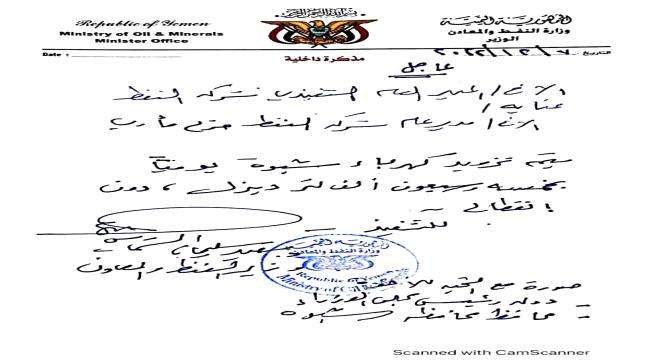 Republic of Yemen
Ministry of Oil & Minerals
Minister Office
الجمهورية اليمنية
وزارة النفط والمعادن
الوزير
Date :
التاريخ ٧ / ١٢ / ٢٠٢٢
مذكرة داخلية
عاجل
الأخ / المدير العام التنفيذي لشركة النفط
عناية /
الأخ / مدير عام شركة النفط مأرب
يتم تزويد كهرباء شبوة يومياً
بخمسة وسبعون ألف لتر ديزل ، دون
انقطاع
للتنفيذ
وزير النفط والمعادن
الجمهورية اليمنية
وزارة النفط والمعادن
Republic of Yemen
Ministry of Oil
صورة مع التحية
دولة رئيس مجلس الوزراء
محافظ محافظة شبوة
Scanned with CamScanner